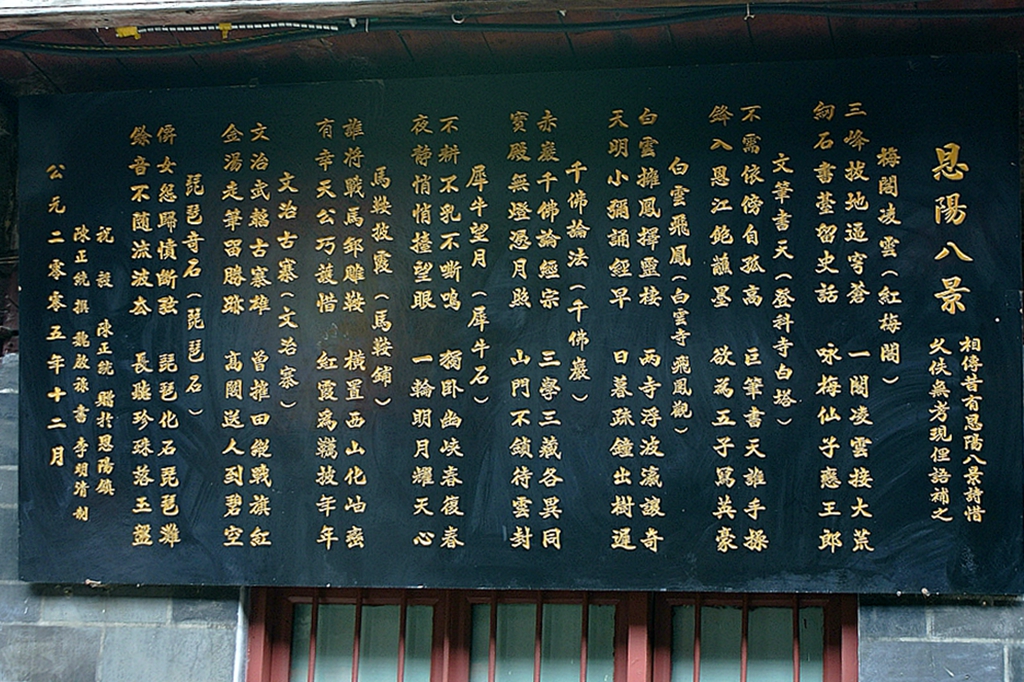 恩陽八景
相傳昔有恩陽八景詩惜
久佚無考現俚語補之
梅閣凌雲(紅梅閣)
三峰拔地逼穹蒼 一閣凌雲接大荒
石書臺留史話 咏梅仙子戀王郎
文筆書天(登科寺白塔)
不需依傍自孤高 巨筆書天誰手操
鋒入恩江飽蘸墨 欲為五子寫英豪
白雲飛鳳(白雲寺飛鳳觀)
白雲擁鳳擇靈棲 兩寺浮波瀛讓奇
天明小彌誦經早 日暮疏鐘出樹遲
千佛論法(千佛巖)
赤巖千佛論經宗 三寧三藏各異同
寶殿無燈憑月照 山門不鎖待雲封
犀牛望月(犀牛石)
不耕不乳不嘶鳴 獨卧幽峽春復春
夜靜悄悄擡望眼 一輪明月耀天心
馬鞍披霞(馬鞍鋪)
誰將戰馬卸雕鞍 橫置西山化岫巒
有幸天公巧護惜 紅霞爲韉披年年
文治古寨(文治寨)
文治武韜古寨雄 曾擁田縱戰旗紅
金湯走筆留勝跡 高閣送人到碧空
琵琶奇石(琵琶石)
儕女怨歸憤斷弦 琵琶化石琵琶灘
餘音不随流波去 長聽珍珠落玉盤
祝設 陳正統賜於恩陽鎮
陳正統撰 龍啟溱書 李明清制
公元二零零五年十二月